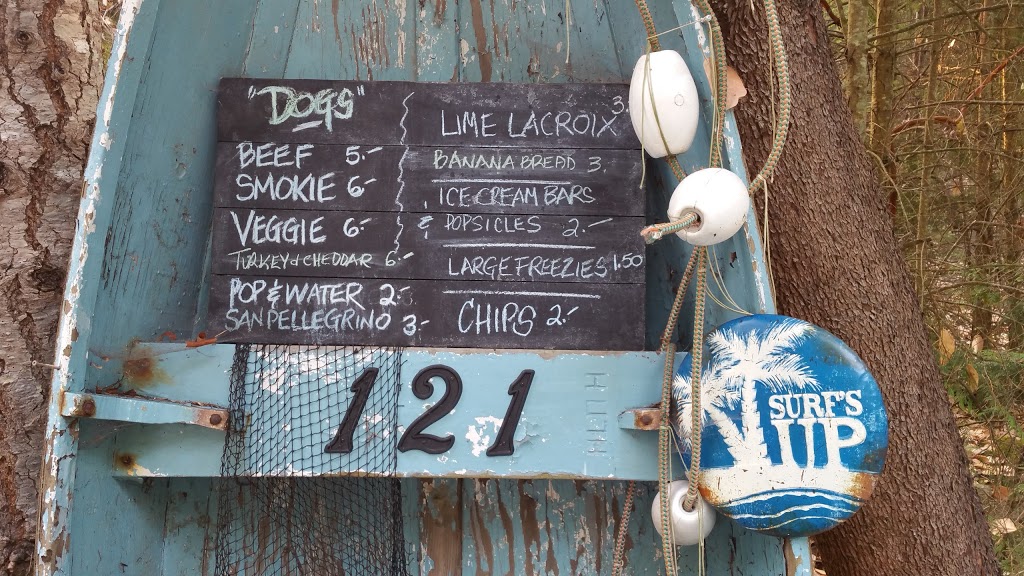 "DOGS"
BEEF 5.-
SMOKIE 6-
VEGGIE 6-
TURKEY & CHEDDAR 6-
POP & WATER 2.-
SANPELLEGRINO 3.-
LIME LACROIX 3.
BANANA BREAD 3.
ICE CREAM BARS
& POPSICLES 2.-
LARGE FREEZIES 1.50
CHIPS 2.-
121
SURF'S
UP